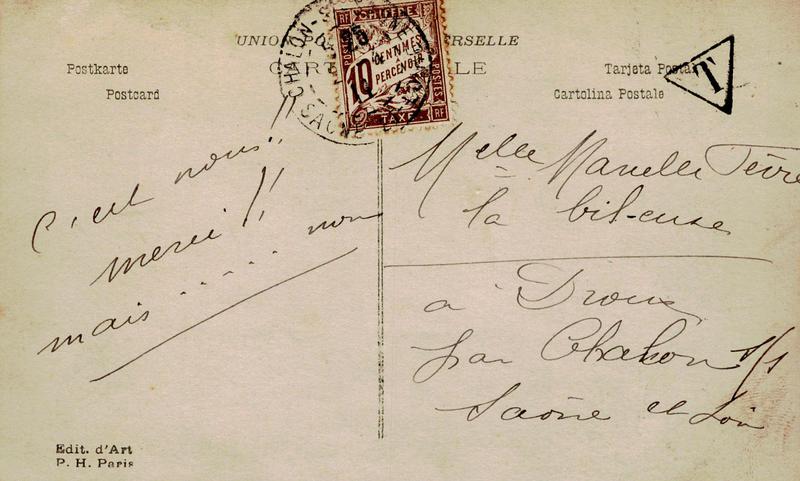 UNION P RSELLE
CARTE LE
Postkarte
Postcard
Tarjeta Postal
Cartolina Postale
CHALON-S-SAONE
SAONE
RF CHIFFRE RF
POSTES
10
CENTIMES
A PERCEVOIR
POSTES
TAXE RF
T
C'est nous!!
merci!!
mais ..... non
Melle Marcelle
la
à
par Chalon s/s
Saône et Loire
Edit. d'Art
P. H. Paris